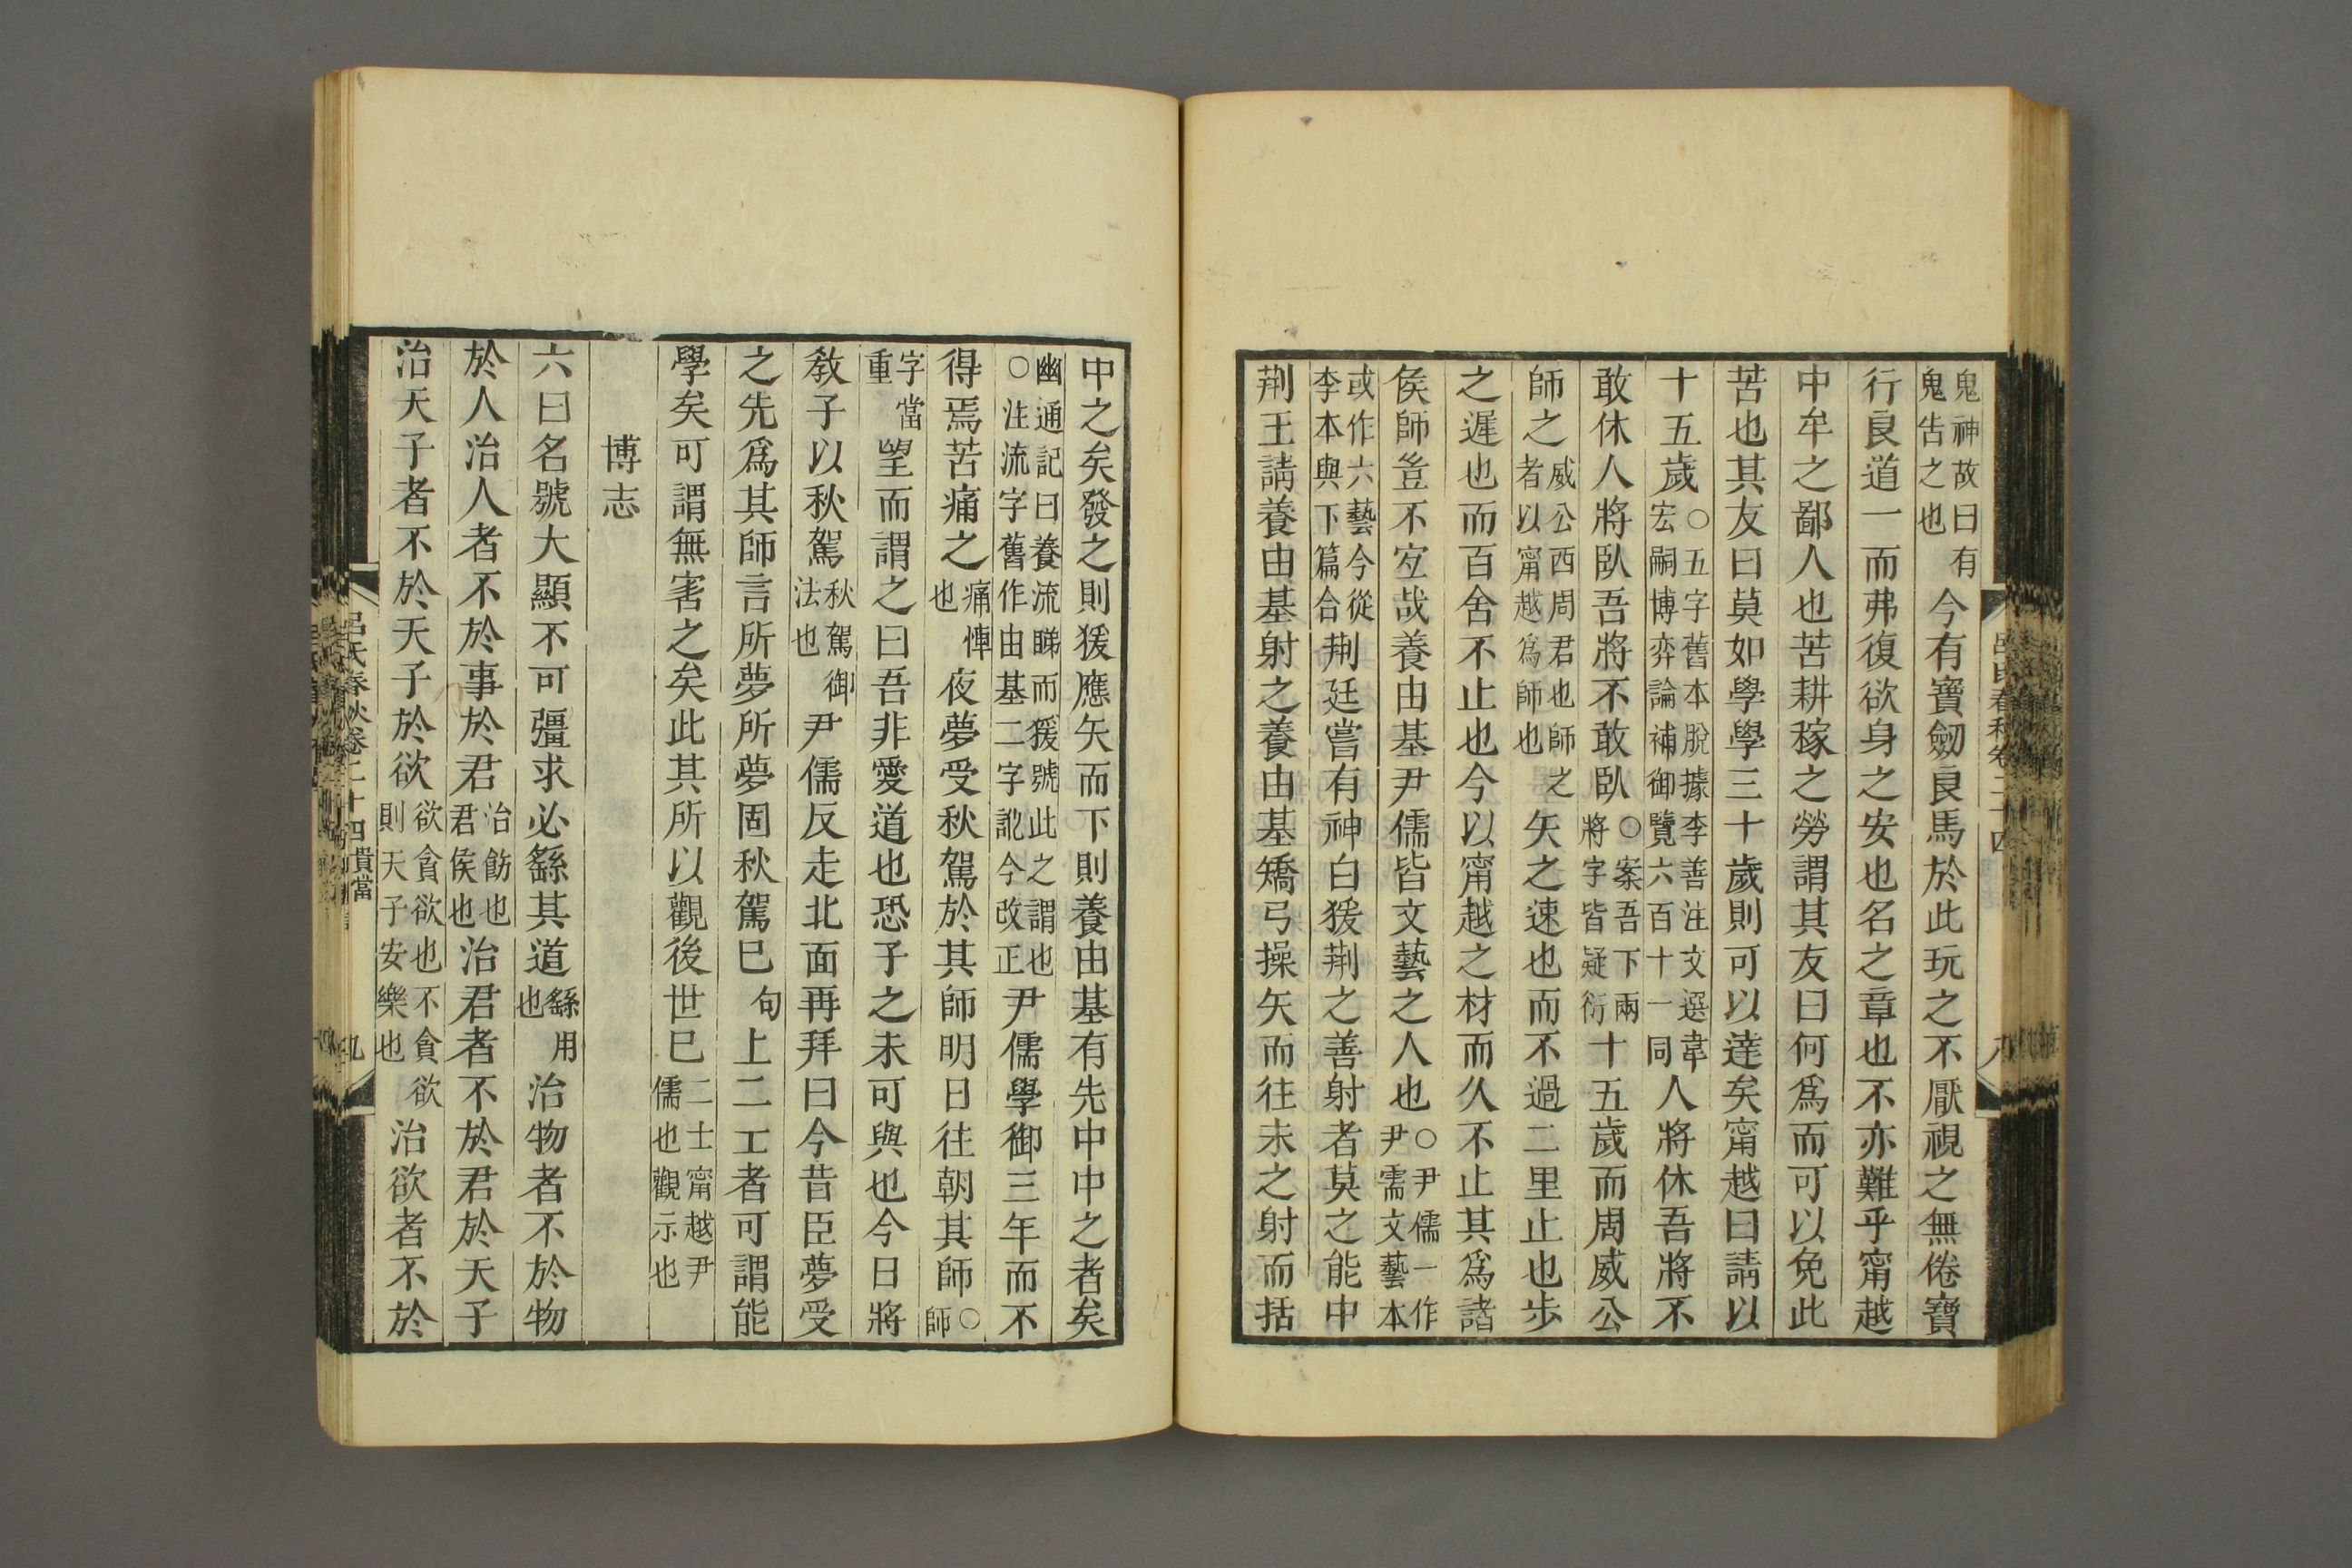 鬼神故曰有鬼告之也今有寶劒良馬於此玩之不厭視之無倦寶
行良道一而弗復欲身之安也名之章也不亦難乎甯越
中牟之鄙人也苦耕稼之勞謂其友曰何爲而可以免此
苦也其友曰莫如學學三十歲則可以達矣甯越曰請以
十五歲○五字舊本脫據李善注文選韋宏嗣博弈論補御覽六百十一同人將休吾將不
敢休人將臥吾將不敢臥○案吾下兩將字皆疑衍十五歲而周威公
師之威公西周君也師之者以甯越爲師也矢之速也而不過二里止也步
之遲也而百舍不止也今以甯越之材而久不止其爲諸
侯師豈不宜哉養由基尹儒皆文藝之人也○尹儒一作尹需文藝本
或作六藝今從李本與下篇合荆廷嘗有神白猨荆之善射者莫之能中
荆王請養由基射之養由基矯弓操矢而往未之射而括
呂氏春秋卷二十四
八
中之矣發之則猨應矢而下則養由基有先中中之者矣
幽通記曰養流睇而猨號此之謂也○注流字舊作由基二字訛今改正尹儒學御三年而不
得焉苦痛之痛悼也夜夢受秋駕於其師明日往朝其師○師
字當重望而謂之曰吾非愛道也恐子之未可與也今日將
敎子以秋駕秋駕御法也尹儒反走北面再拜曰今昔臣夢受
之先爲其師言所夢所夢固秋駕巳句上二士者可謂能
學矣可謂無害之矣此其所以觀後世巳二士甯越尹儒也觀示也
博志
六曰名號大顯不可彊求必繇其道繇用也治物者不於物
於人治人者不於事於君治飭也君侯也治君者不於君於天子
治天子者不於天子於欲欲貪欲也不貪欲則天子安樂也治欲者不於
呂氏春秋卷二十四貴當
九